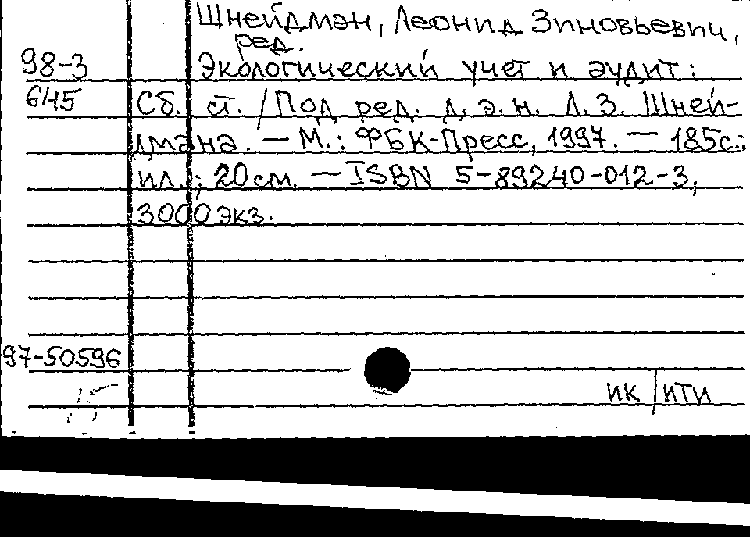 Шнейдман, Леонид Зиновьевич,
ред.
98-3 Экологический учет и аудит:
6145 Сб. ст. / Под ред. д.э.н. Л.З. Шней-
дмана. — М.: ФБК-Пресс, 1997. — 185с.:
ил.; 20см. — ISBN 5-89240-012-3,
3000экз.
97-50596
ик/ити